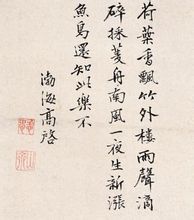 荷葉香飄竹外樓雨聲滴
碎採菱舟南風一夜生新漲
魚鳥還知此樂不
渤海高啓